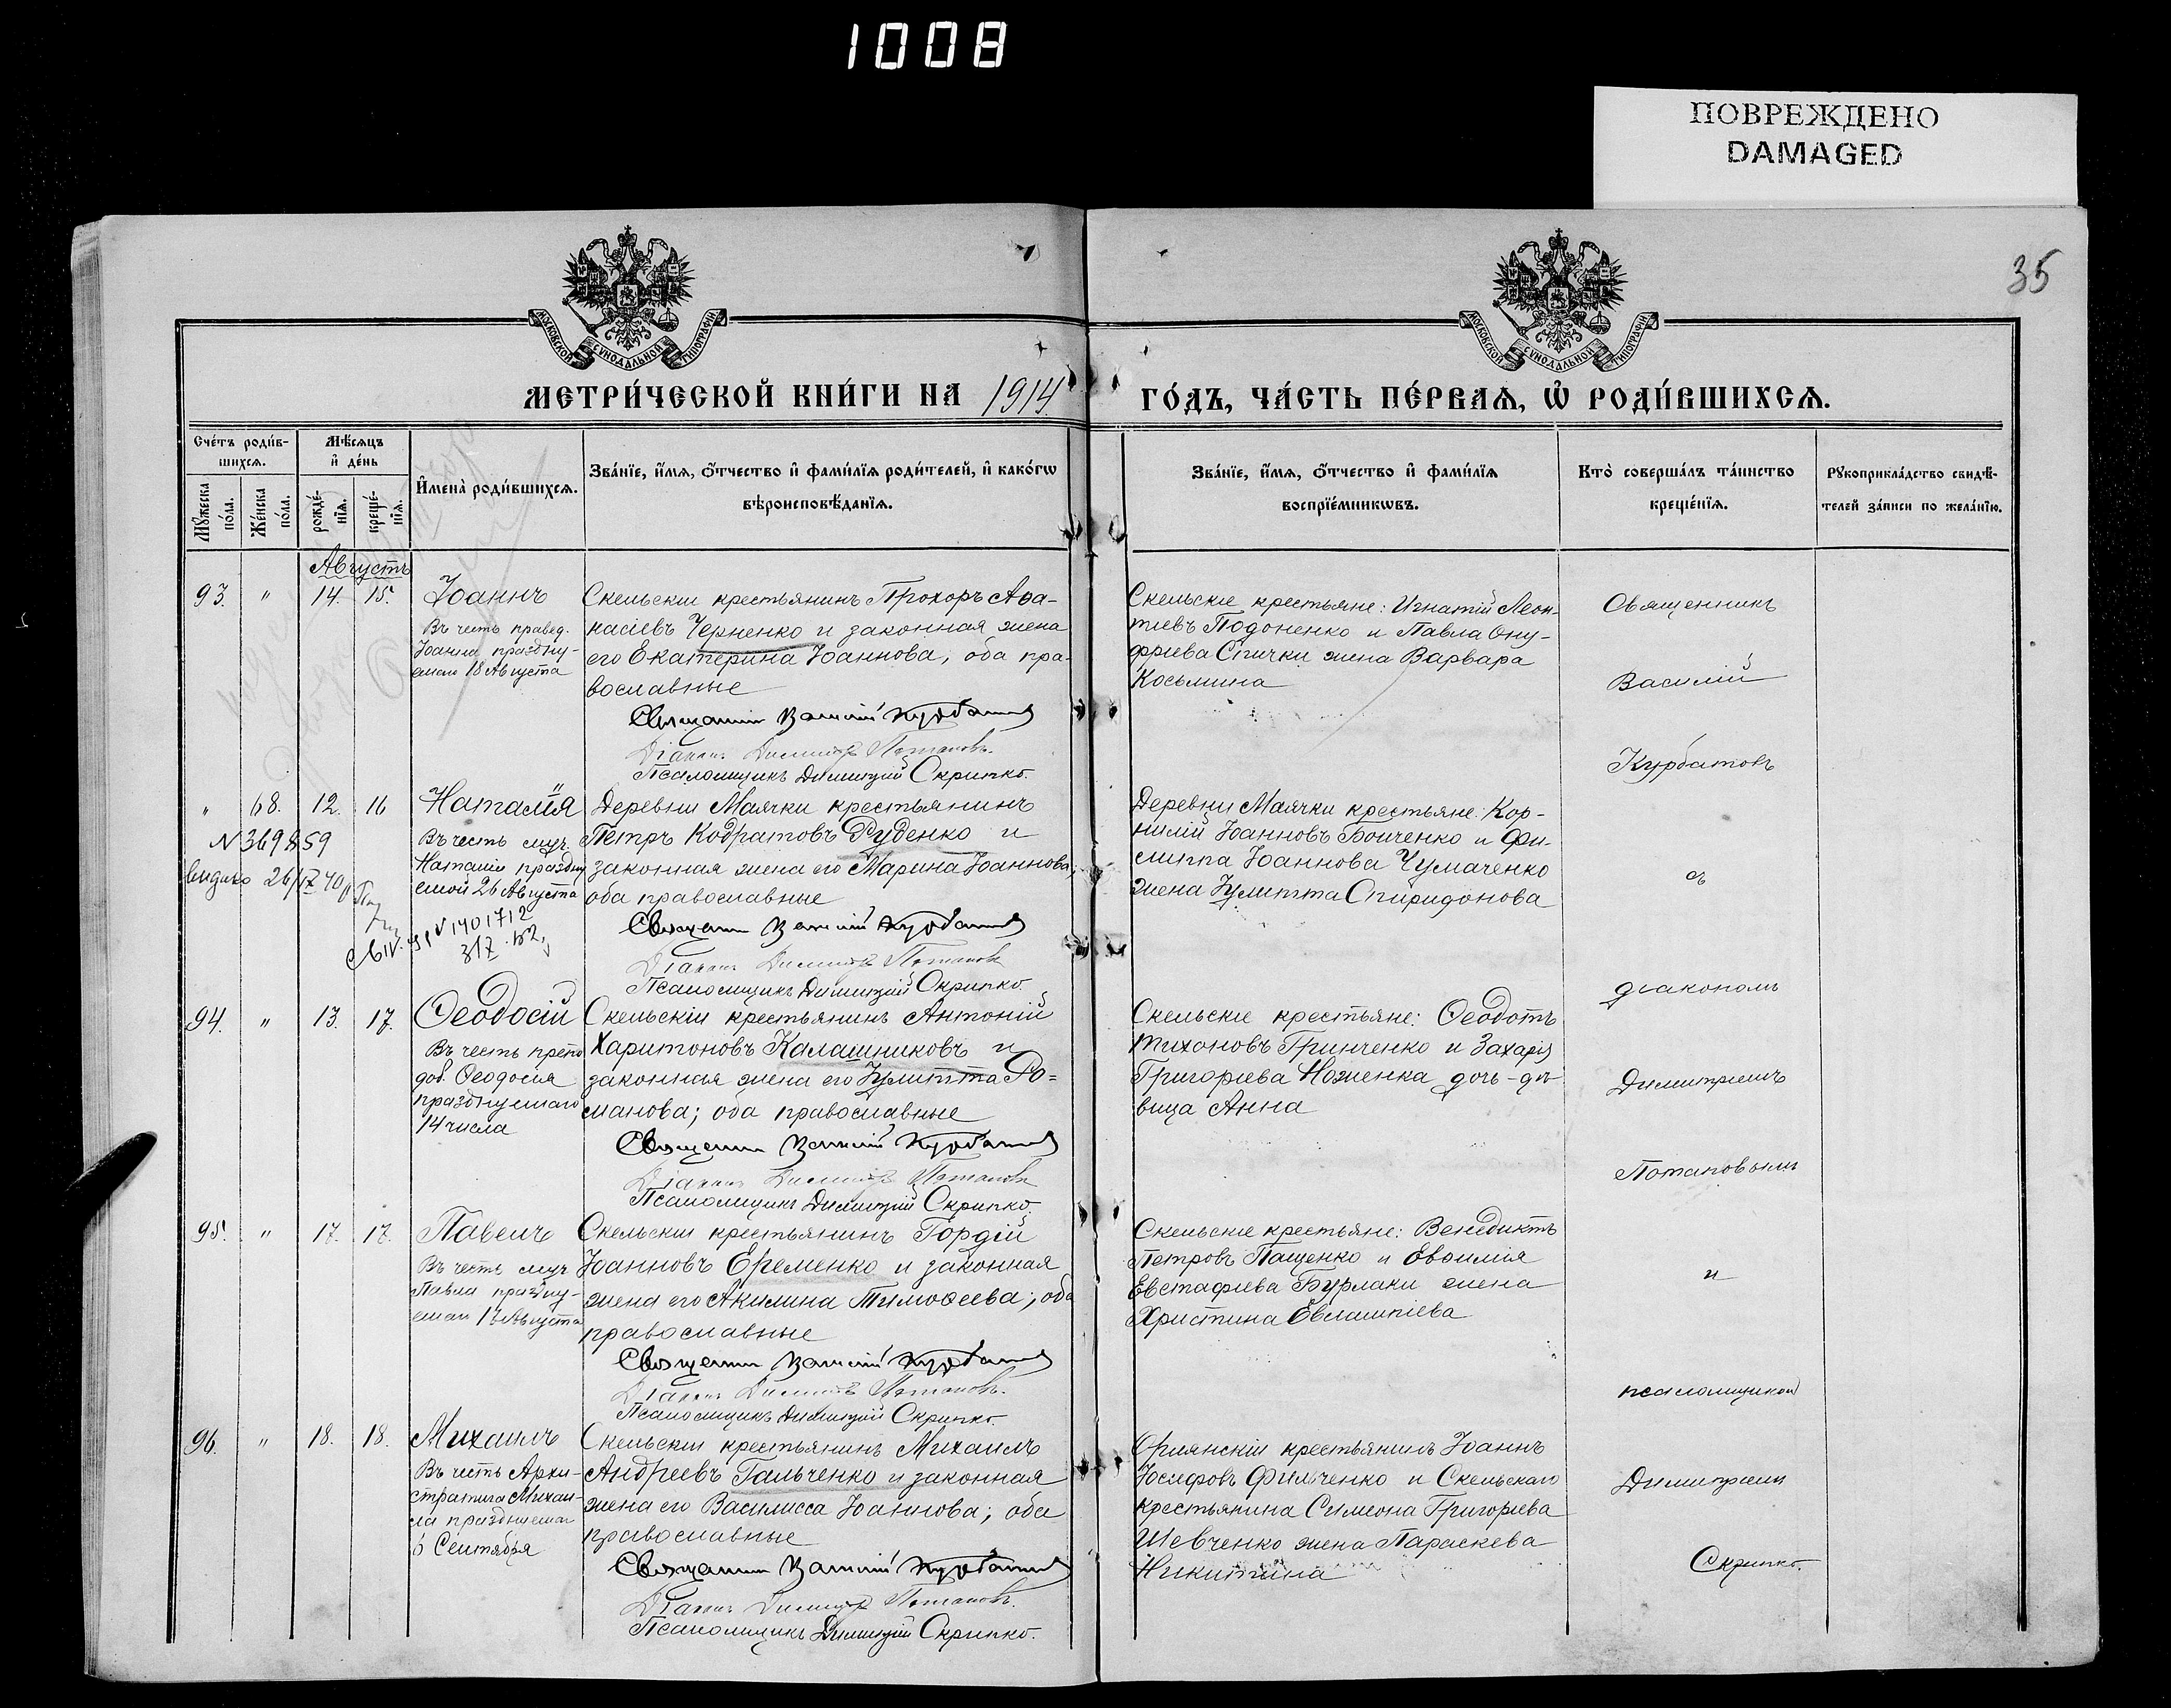 1008
ПОВРЕЖДЕНО
DAMAGED
35
МОСКОВСКОЙ СѴНОДАЛЬНОЙ ТИПОГРАФІИ
МОСКОВСКОЙ СѴНОДАЛЬНОЙ ТИПОГРАФІИ
МЕТРИ́ЧЕСКОЙ КНИ́ГИ НА 1914 ГО́ДЪ, ЧА́СТЬ ПЕ́РВАѦ, Ѡ҆ РОДИ́ВШИХСѦ.
Сче́тъ роди́в-
шихсѧ.
Мꙋ́жеска по́ла.
Же́нска по́ла.
Мѣ́сѧцъ
и҆ де́нь
рожде́-
нїѧ.
креще́-
нїѧ.
И҆мена̀ роди́вшихсѧ.
Зва́нїе, и҆́мѧ, ѻ҆́тчество и҆ фами́лїѧ роди́телей, и҆ како́гѡ
вѣроисповѣ́данїѧ.
Зва́нїе, и҆́мѧ, ѻ҆́тчество и҆ фами́лїѧ
воспрїе́мникѡвъ.
Кто̀ соверша́лъ та́инство
креще́нїѧ.
Рꙋкоприкла́дство свидѣ́-
телей за́писи по жела́нїю.
Августъ
93. " 14. 15. Іоаннъ
Въ честь правед.
Іоанна праздну-
емаго 18 Августа
Скельскій крестьянинъ Прохоръ Аѳа-
насіевъ Черненко и законная жена
его Екатерина Іоаннова; оба пра-
вославные
Священникъ Василій Курбатовъ
Діаконъ Димитрій Потаповъ.
Псаломщикъ Димитрій Скрипко.
Скельскіе крестьяне: Игнатій Леон-
тіевъ Подоненко и Павла Ону-
фріева Спички жена Варвара
Косьмина
Священникъ
Василій
Курбатовъ
съ
діакономъ
Димитріемъ
Потаповымъ
и
псаломщикомъ
Димитріемъ
Скрипко.
" 68. 12. 16 Наталія
Въ честь муч.
Наталіи праздну
емой 26 Августа
N 369859
видано
N 1401712
Деревни Маячки крестьянинъ
Петръ Кодратовъ Руденко и
законная жена его Марина Іоаннова;
оба православные
Священникъ Василій Курбатовъ
Діаконъ Димитрій Потаповъ
Псаломщикъ Димитрій Скрипко.
Деревни Маячки крестьяне: Кор-
нилій Іоанновъ Бойченко и Фи-
липпа Іоаннова Чумаченко
жена Іулитта Спиридонова
94. " 13. 17. Ѳеодосій
Въ честь препо
доб. Ѳеодосія
празднуемаго
14 числа
Скельскій крестьянинъ Антоній
Харитоновъ Калашниковъ и
законная жена его Іулитта Ро=
манова; оба православные
Священникъ Василій Курбатовъ
Діаконъ Димитрій Потаповъ
Псаломщикъ Димитрій Скрипко.
Скельскіе крестьяне: Ѳеодотъ
Тихоновъ Гринченко и Захарія
Григоріева Ноженка дочь-дѣ-
вица Анна
95. " 17. 17. Павелъ
Въ честь муч
Павла праздну-
емаго 17 Августа
Скельскій крестьянинъ Гордій
Іоанновъ Еременко и законная
жена его Акилина Тимоѳеева; оба
православные
Священникъ Василій Курбатовъ
Діаконъ Димитрій Потаповъ.
Псаломщикъ Димитрій Скрипко.
Скельскіе крестьяне: Венедиктъ
Петровъ Пащенко и Евѳимія
Евстафіева Бурлаки жена
Христина Евлампіева
96. " 18. 18. Михаилъ
Въ честь Архи-
стратига Михаи-
ла празднуемаго
6 Сентября
Скельскій крестьянинъ Михаилъ
Андреевъ Гальченко и законная
жена его Василисса Іоаннова; оба
православные
Священникъ Василій Курбатовъ
Діаконъ Димитрій Потаповъ.
Псаломщикъ Димитрій Скрипко.
Орлянскій крестьянинъ Іоаннъ
Іосифовъ Фильченко и Скельскаго
крестьянина Симеона Григоріева
Шевченко жена Параскева
Никитина